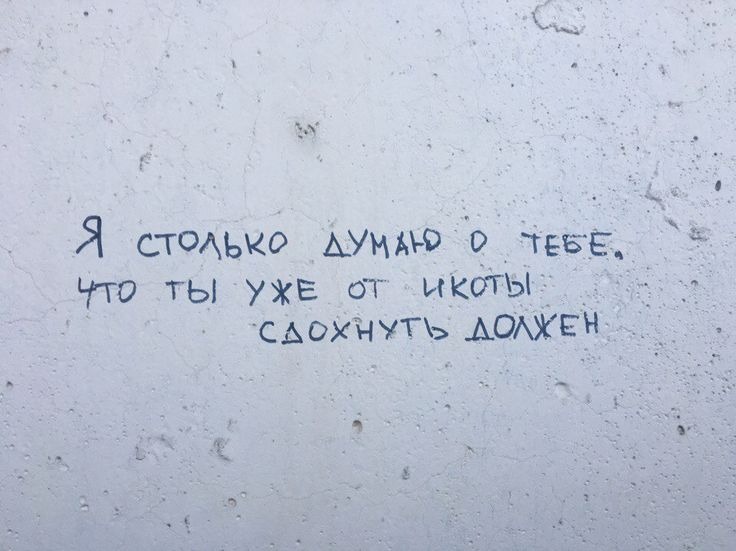 Я СТОЛЬКО ДУМАЮ О ТЕБЕ,
ЧТО ТЫ УЖЕ ОТ ИКОТЫ
СДОХНУТЬ ДОЛЖЕН